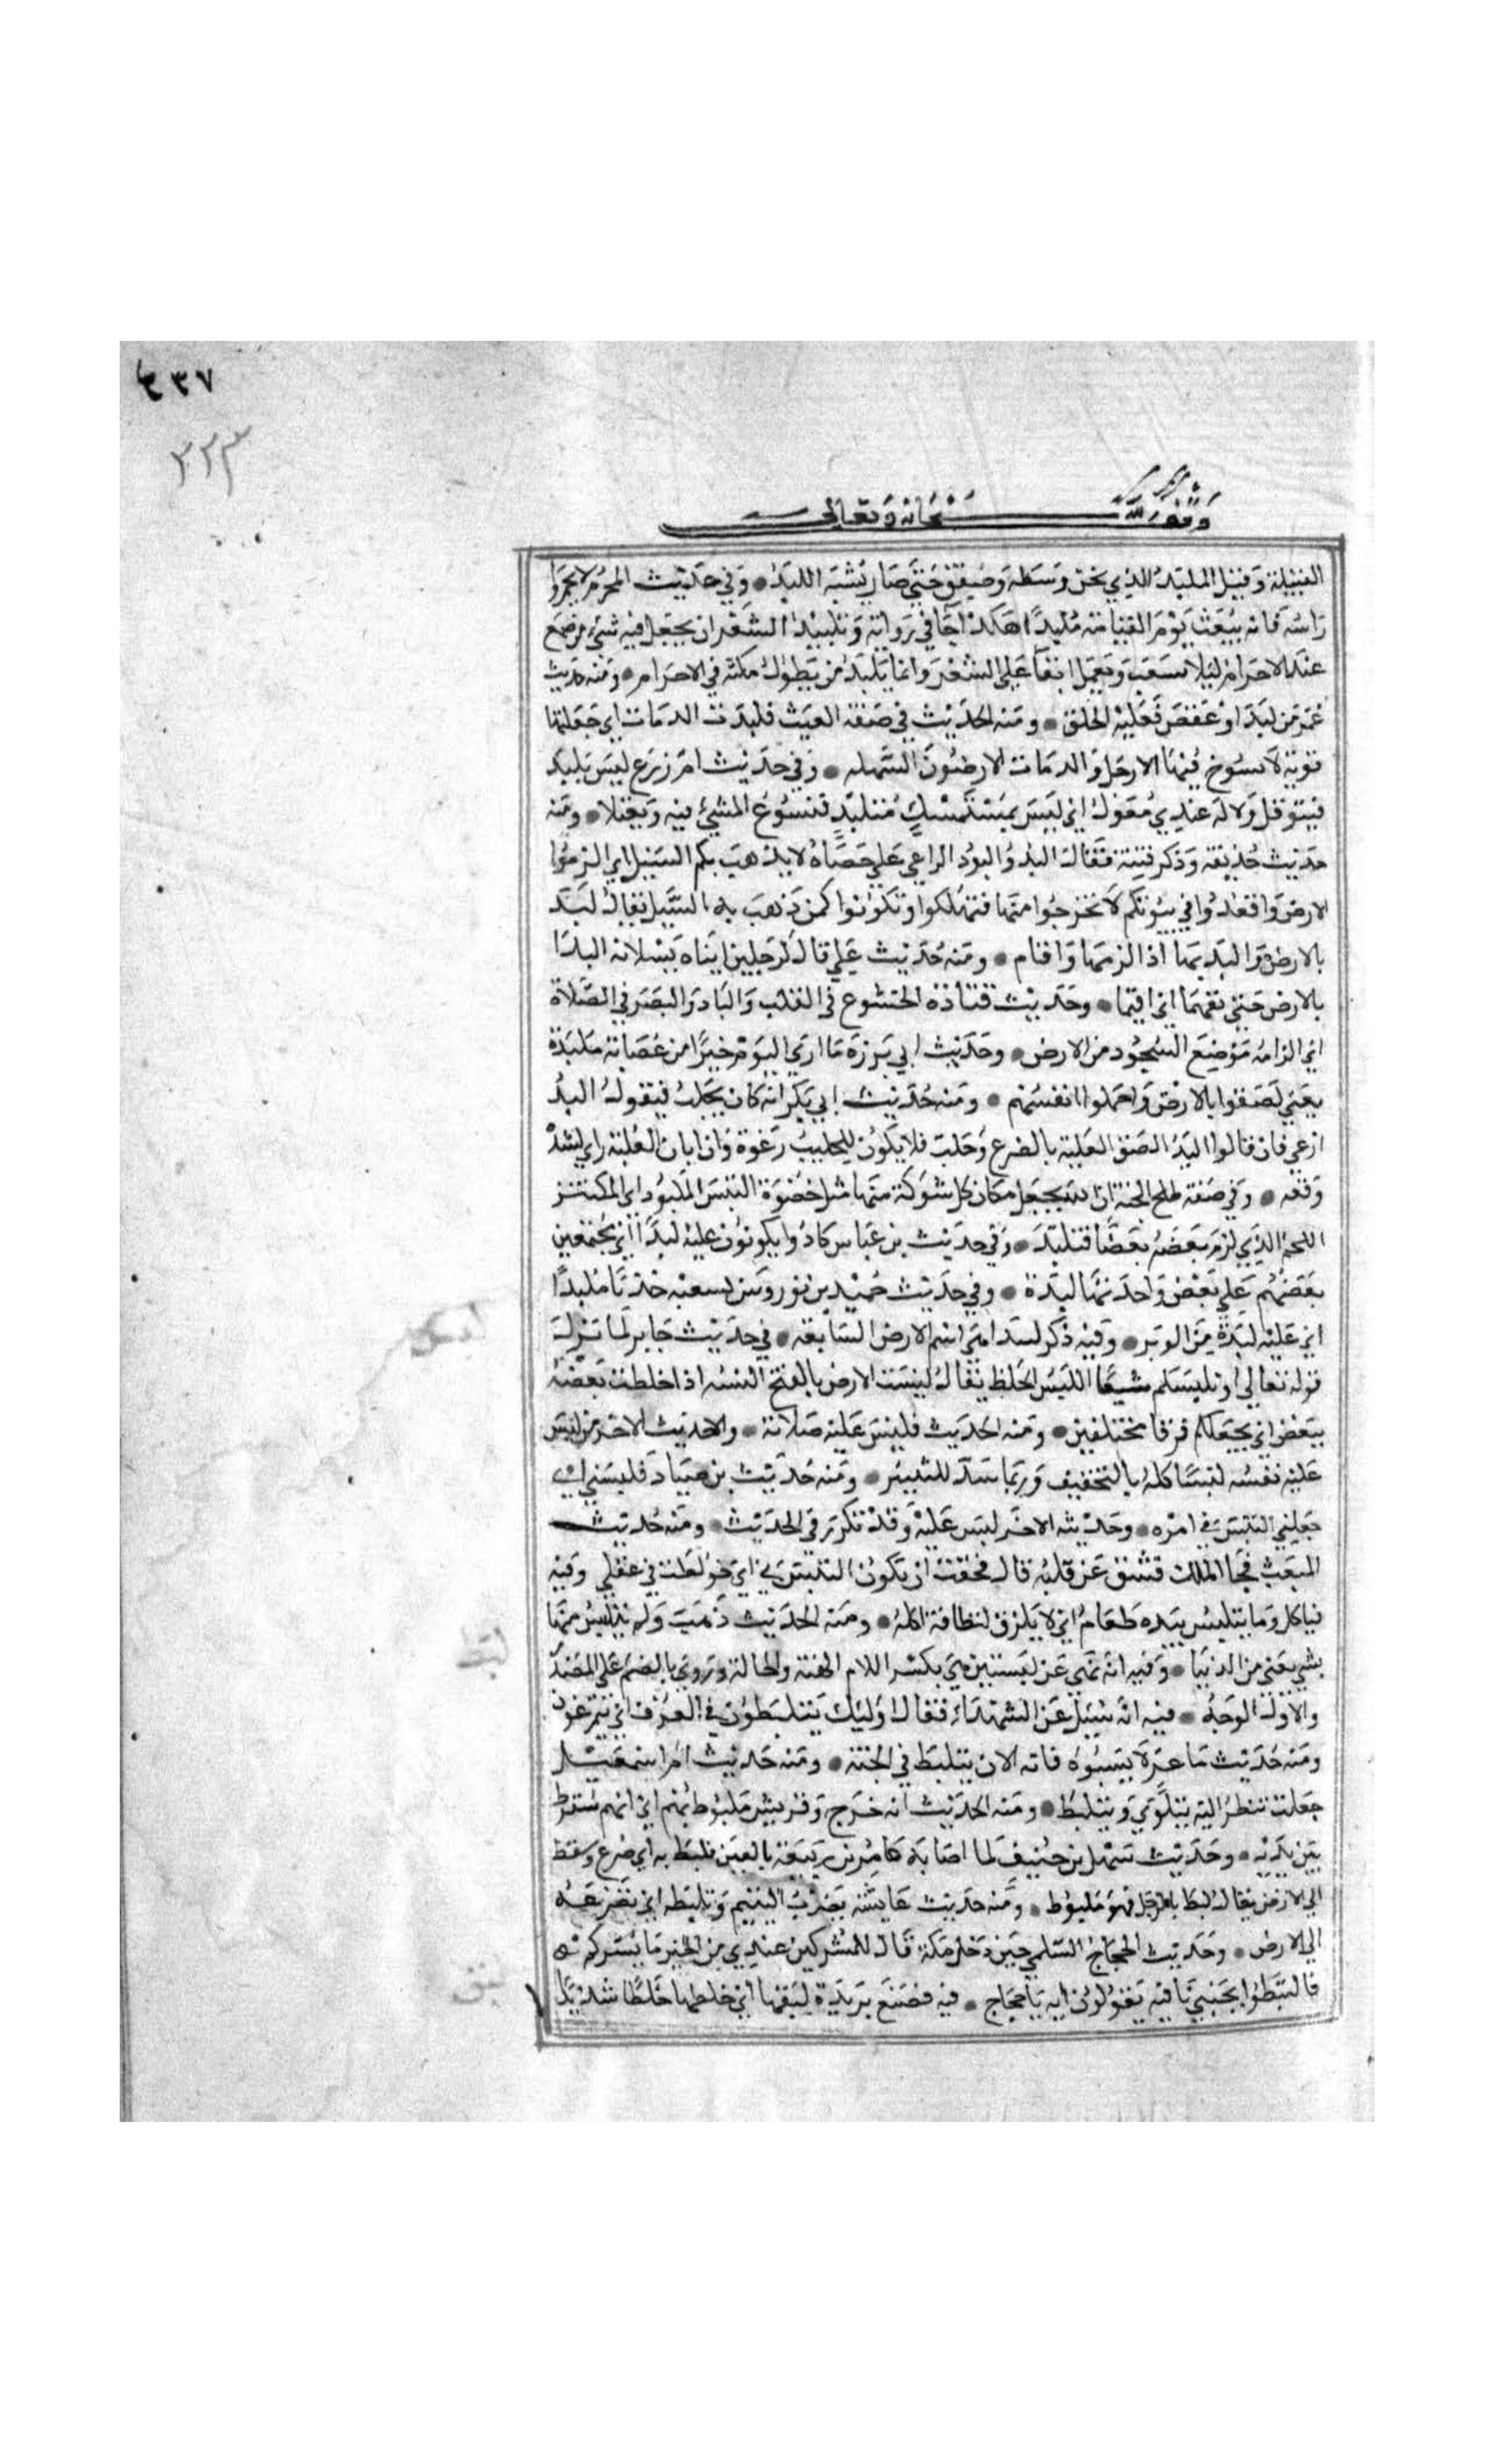 ٤٣٧
٣٢٣
وقف لله سبحانه وتعالى
القبيلة وقيل الملبد الذي يخن وسطه وصفق حتى صار يشبه اللبد وفي حديث المحرم لا تخمروا
راسه فانه يبعث يوم القيامة ملبدا هكذا جا في رواية وتلبيد الشعر ان يجعل فيه شي من صمغ
عند الاحرام ليلا يشعث ويقمل ابقا على الشعر وانما يلبد من يطول مكثه في الاحرام ومنه حديث
عمر من لبد او عقص فعليه الحلق ومنه الحديث في صفة الغيث فلبدت الدماث اي جعلتها
قوية لا تسوخ فيها الارجل والدماث الارضون السهله وفي حديث ام زرع ليس بلبد
فيتوقل ولا له عندي معول اي ليس بمستمسك متلبد فيسرع المشي فيه ويعتلا ومنه
حديث حذيفة وذكر فتنة فقال البدوا لبود الراعي على عصاه لا يذهب بكم السيل اي الزموا
الارض واقعدوا في بيوتكم لا تخرجوا منها فتهلكوا وتكونوا كمن ذهب به السيل يقال لبد
بالارض والبد بها اذا لزمها واقام ومنه حديث علي قال لرجلين اتياه يسلانه البدا
بالارض حتى تفهما اي اقيما وحديث قتادة الخشوع في القلب والباد البصر في الصلاة
اي الزامه موضع السجود من الارض وحديث ابي برزة ما ارى اليوم خيرا من عصابة ملبدة
يعني لصقوا بالارض واخملوا انفسهم ومنه حديث ابي بكر انه كان يحلب فيقول البد
ام ارغي فان قالوا البد الصق العلبة بالضرع وحلب فلا يكون للحليب رغوة وان ابان العلبة رغا لشدة
وقعه وفي صفة طلح الجنة ان الله يجعل مكان كل شوكة منها مثل خصوة التيس الملبود اي المكتنز
اللحم الذي لزم بعضه بعضا فتلبد وفي حديث بن عباس كادوا يكونون عليه لبدا اي مجتمعين
بعضهم على بعض واحدتها لبدة وفي حديث حميد بن ثور
اي عليه لبدة من الوبر وفيه ذكر لبيدا وهي اسم الارض السابعة في حديث جابر لما نزلت
قوله تعالى او يلبسكم شيعا اللبس الخلط يقال لبست الامر بالفتح البسه اذا خلطت بعضه
ببعض اي يجعلكم فرقا مختلفين ومنه الحديث فلبس عليه صلاته والحديث الاخر من لبس
عليه نفسه لبسا كله بالتخفيف وربما شدد للتكثير ومنه حديث بن صياد فلبسني اي
جعلني التبس في امره وحديثه الاخر لبس عليه وقد تكرر في الحديث ومنه حديث
المبعث فجا الملك فشق عن قلبه قال فخفت ان يكون التبس بي اي خولطت في عقلي وفيه
فياكل وما يتلبس بيده طعام اي لا يلزق لنظافة اكله ومنه الحديث ذهب ولم يتلبس منها
بشي يعني من الدنيا وفيه انه نهى عن لبستين هي بكسر اللام الهيئة والحالة وروي بالضم على المصدر
والاول الوجه فيه انه سيل عن الشهداء فقال اوليك يتلبطون في الغرف اي يتمرغون
ومنه حديث ماعز لا تسبوه فانه الان يتلبط في الجنة ومنه حديث ام اسمعيل
جعلت تنظر اليه يتلوى ويتلبط ومنه الحديث انه خرج وقريش ملبوط بهم اي انهم سقوط
بين يديه وحديث سهل بن حنيف لما اصابه عامر بن ربيعة بالعين فلبط به اي صرع وسقط
الى الارض يقال لبط بالرجل فهو ملبوط ومنه حديث عايشة تضرب اليتيم وتلبطه اي تصرعه
الى الارض وحديث الحجاج السلمي حين دخل مكة قال للمشركين عندي من الخبر ما يسركم
فالتبطوا بجنبي ناقته يقولون ايه يا حجاج فيه فصنع ثريدة ثم لبقها اي خلطها خلطا شديدا
لبس
لبط
لبق